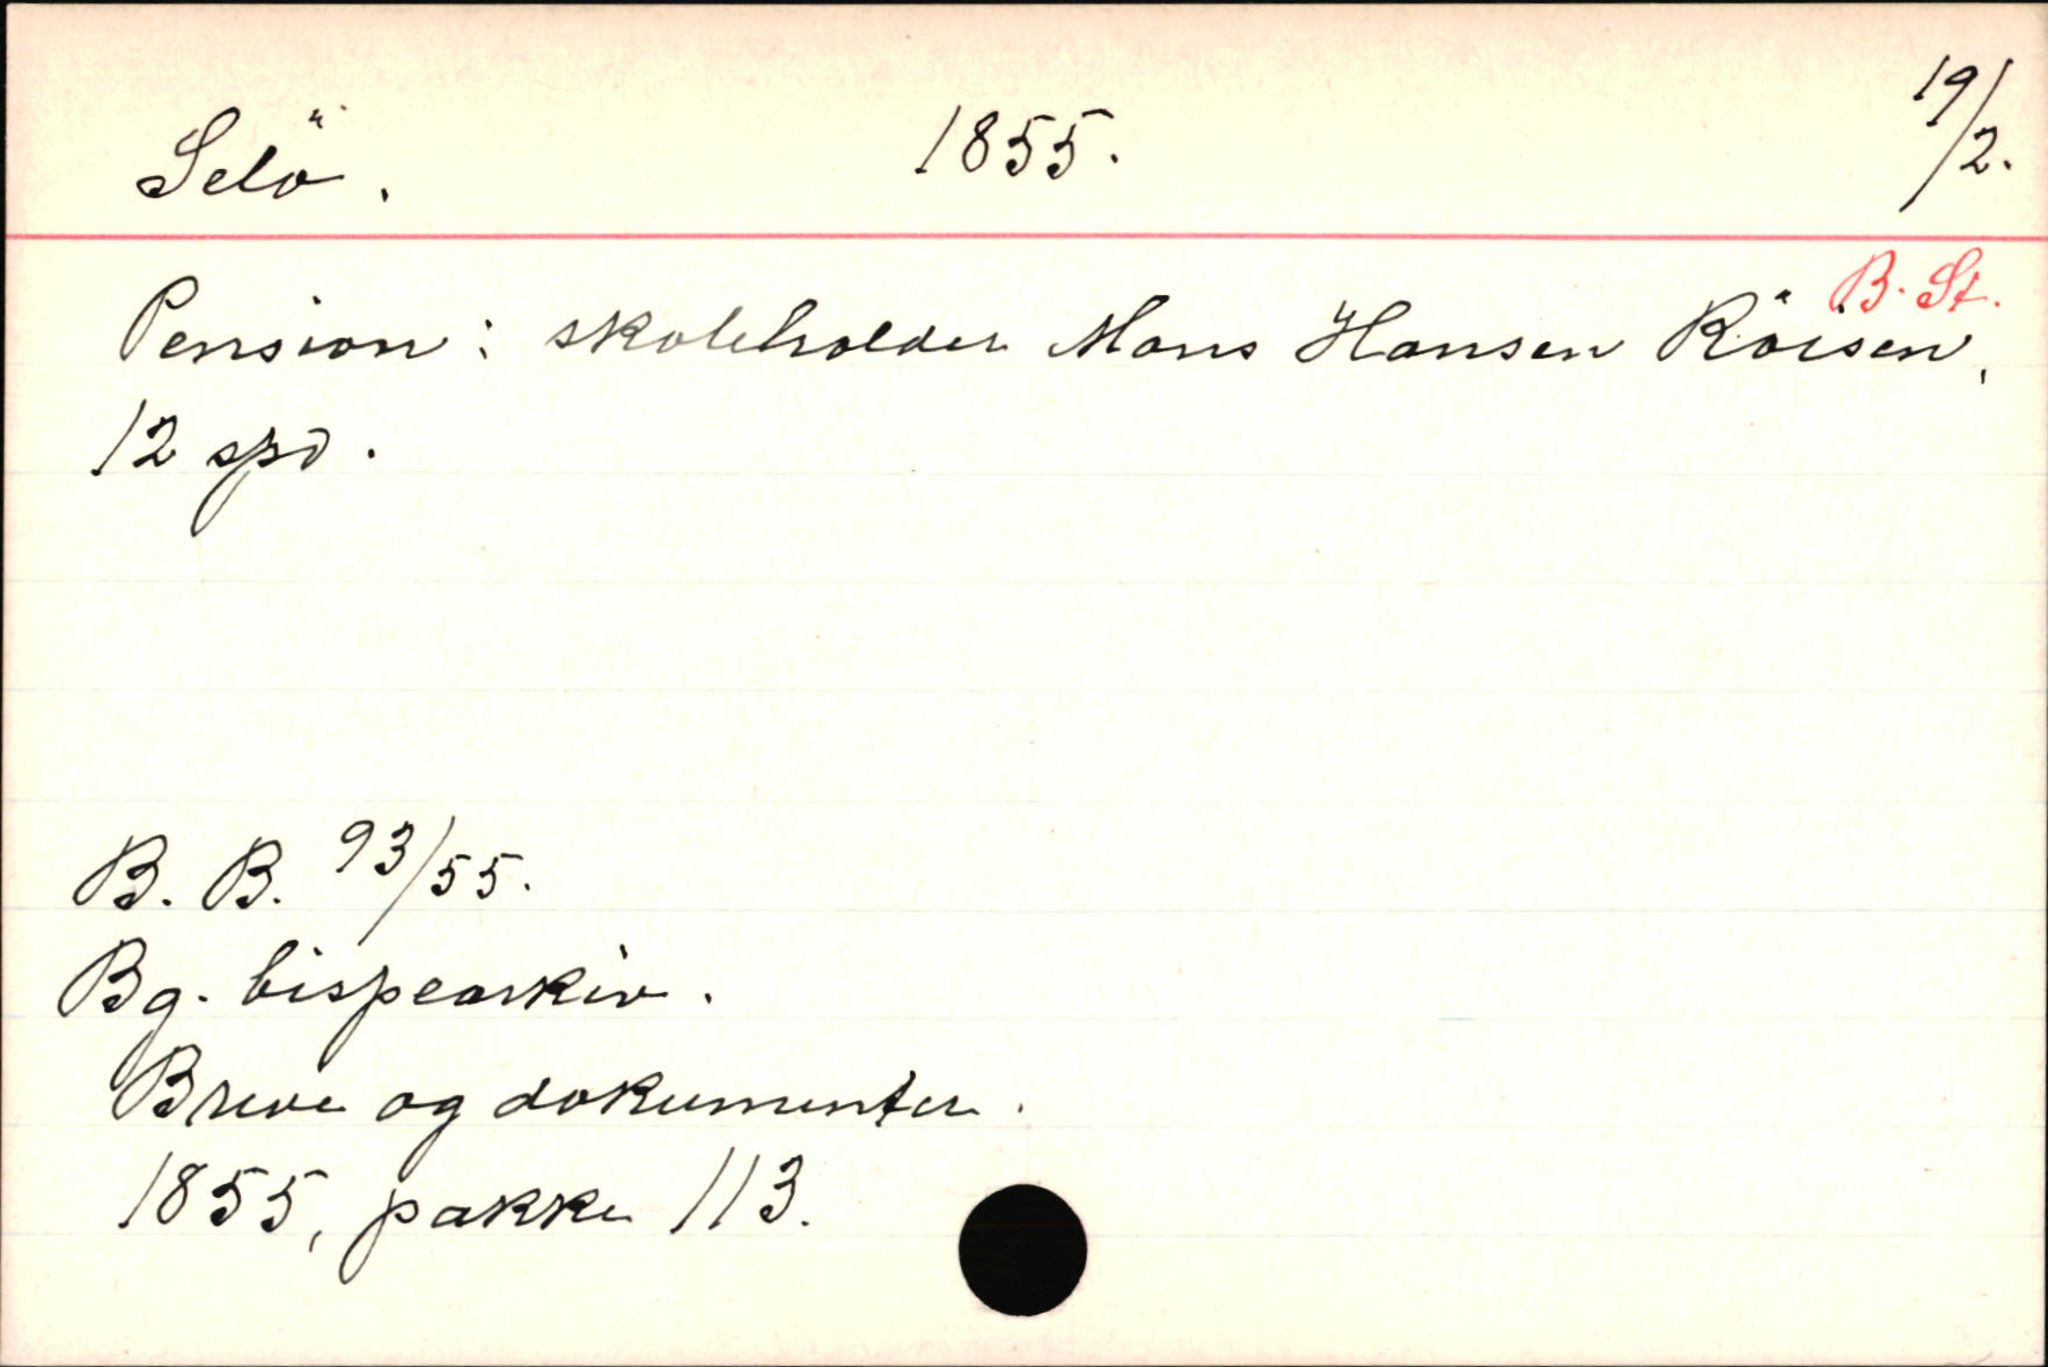 Selö. 1855. 19/2.
B. St.
Pension: skoleholder Mons Hansen Röisen,
12 spd.
B. B. 93/55.
Bg. bispearkiv.
Breve og dokumenter.
1855, pakke 113.